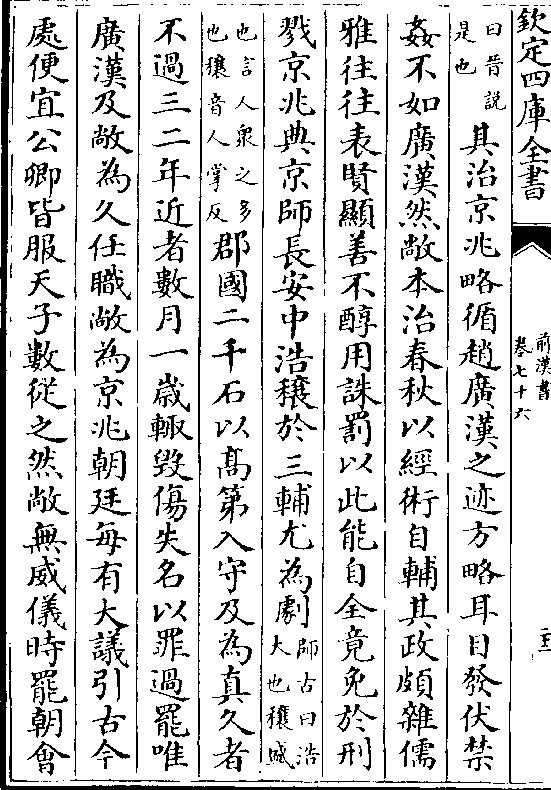 欽定四庫全書
前漢書
卷七十六
曰晉說
是也
其治京兆略循趙廣漢之迹方略耳目發伏禁
姦不如廣漢然敞本治春秋以經術自輔其政頗雜儒
雅往往表賢顯善不醇用誅罰以此能自全竟免於刑
戮京兆典京師長安中浩穰於三輔尤為劇
師古曰浩
大也穰盛
也言人衆之多
也穰音人掌反
郡國二千石以髙第入守及為真久者
不過三二年近者數月一歲輙毀傷失名以罪過罷唯
廣漢及敞為久任職敞為京兆朝廷每有大議引古今
處便宜公卿皆服天子數從之然敞無威儀時罷朝會